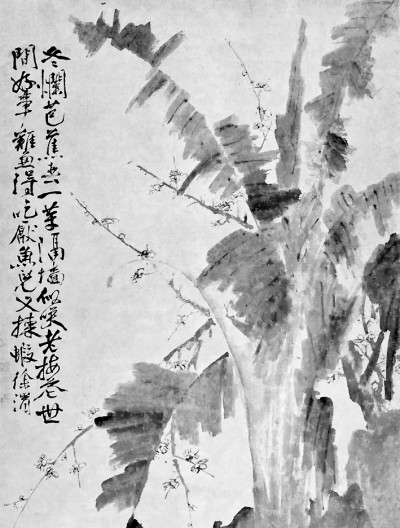 冬爛芭蕉春一芽隔墻似笑老梅花世
間好事難兼得吃厭魚兒又揀蝦徐渭